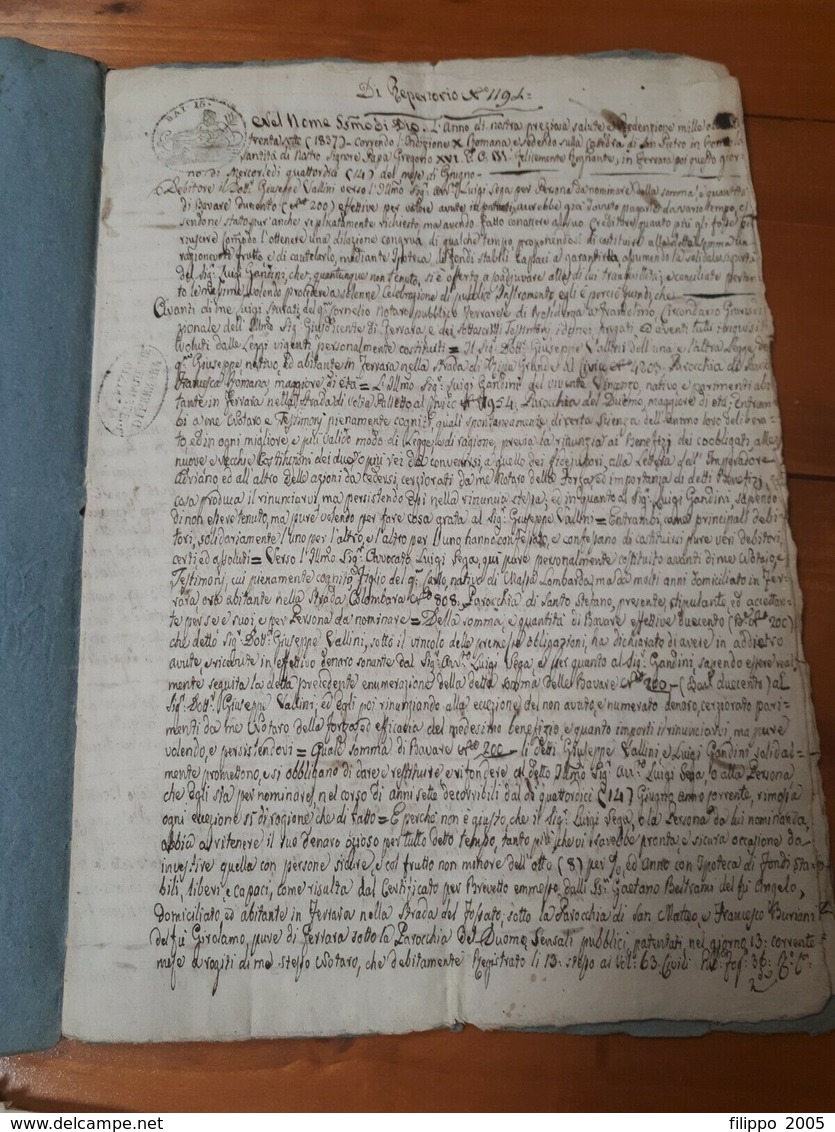 Di Repertorio N.° 119
BAI. 15.
Nel Nome SSmo di Dio. L'Anno di nostra preziosa salute e Redenzione mille otto
trenta sette (1837) correndo l'Indizione X Romana, e sedendo sulla Cattedra di San Pietro in
Santità di Nostro Signore Papa Gregorio XVI. P. O. M. felicemente Regnante, in Ferrara poi questo gior-
no di Mercoledì quattordici (14) del mese di Giugno
Debitore il Dott. Giuseppe Vallini verso l'Illmo Sig. Avv. Luigi Sega per Persona da nominare della somma, e quantità
di Bavare duecento (N.° 200) effettive per valore avute in avrebbe già dovuto pagare da vario tempo, es-
sendone stato pur anche replicatamente richiesto, ma avendo fatto conoscere al suo Creditore quanto più gli fosse per
riuscire comodo l'ottenere una dilazione congrua di qualche tempo, proponendosi di costituire alla detta somma un
ragionevole frutto, e di cautelarlo, mediante Ipoteca, de' fondi stabili capaci a garantirla, assumendo la
del Sig. Luigi Gandini, che, quantunque non tenuto, si è offerto a di lui tranquillità, e conciliate pertan-
to le massime volendo procedere a solenne Celebrazione di pubblico Instromento, egli è perciò quindi, che
Avanti di me Luigi del q.m Cornelio Notaro pubblico Ferrarese di Residenza in Circondario Giurisdi-
zionale dell'Illmo Sig. Giusdicente di Ferrara, e dei sottoscritti Testimoni idonei, pregati, ed aventi tutti i requisiti
voluti dalle Leggi vigenti personalmente costituiti = Il Sig. Dott. Giuseppe Vallini dell'una e l'altra Legge del
q.m Giuseppe nativo, ed abitante in Ferrara nella Strada di Ripa Grande al Civico N.° Parocchia di Santa
Francesca Romana, maggiore di età = L'Illmo Sig. Luigi Gandini del vivente Vincenzo, nativo e parimenti abi-
tante in Ferrara nella Strada di Volta Palletto al Civico N.° 1954: Parocchia del Duomo, maggiore di età, Entram-
bi a me Notaro e Testimonj pienamente cogniti, quali spontaneamente, di certa Scienza dell'animo loro delibera-
to, ed in ogni migliore, e più valido modo di Legge, e di ragione, previa la rinuncia ai Benefizj dei coobligati, alle
nuove e vecchie Costituzioni dei due, o più rei da convenirsi, a quello dei fidejussori, alla Lettera dell'Imperadore
Adriano, ed all'altro delle azioni da cedersi, cerziorati da me Notaro della forza, ed importanza di detti Benefizj,
cosa produca il rinunciarvi, ma persistendo essi nella rinuncia stessa, ed in quanto al Sig. Luigi Gandini, sapendo
di non essere tenuto, ma pure volendo per fare cosa grata al Sig. Giuseppe Vallini = Entrambi, come principali debi-
tori, solidariamente l'uno per l'altro, e l'altro per l'uno hanno confessato, e confessano di costituirsi pure veri debitori,
certi ed assoluti = Verso l'Illmo Sig. Avvocato Luigi Sega, qui pure personalmente costituito avanti di me Notaro, e
Testimonj, cui pienamente cognito, figlio del q.m Carlo, nativo di Massa Lombarda, ma da molti anni domiciliato in Fer-
rara ora abitante nella Strada Colombara N.° 808: Parocchia di Santo Stefano, presente, stipulante, ed accettan-
te per se e suoi, e per Persona da nominare = Della somma, e quantità di Bavare effettive duecento (N.° 200)
che detto Sig. Dott. Giuseppe Vallini, sotto il vincolo delle premesse obbligazioni, ha dichiarato di avere in addietro
avute e ricevute in effettivo denaro sonante dal Sig. Avv. Luigi Sega, e per quanto al Sig. Gandini, sapendo essere real-
mente seguita la detta precedente enumerazione della detta somma delle Bavare N.° 200 - (duecento) al
Sig. Dott. Giuseppe Vallini, ed egli poi rinunziando alla eccezione del non avuto, e numerato denaro, cerziorato pari-
menti da me Notaro della forza, ed efficacia del medesimo benefizio, e quanto importi il rinunciarvi, ma pure
volendo, e persistendovi = Quale somma di Bavare N.° 200 - li detti Giuseppe Vallini e Luigi Gandini solidal-
mente promettono, e si obbligano di dare, e restituire e rifondere al detto Illmo Sig. Avv. Luigi Sega, o alla Persona
che Egli sta per nominare, nel corso di anni sette decorribili dal dì quattordici (14) Giugno anno corrente, rimossa
ogni eccezione sì di ragione che di fatto = E perchè non è giusto, che il Sig. Luigi Sega, o la Persona da lui nominanda,
abbia a ritenere il suo denaro ozioso per tutto detto tempo, tanto più che vi sarebbe pronta e sicura occasione da
investire quella con persone sicure, e col frutto non minore dell'otto (8) per %, ed Anno con Ipoteca di Fondi sta-
bili, liberi e capaci, come risulta dal Certificato per Brevetto emmesso dalli SSri. Gaetano Beltrami del fu Angelo,
domiciliato, ed abitante in Ferrara nella Strada del Fossato, sotto la Parocchia di San Matteo, e Francesco Buriani
del fu Girolamo, pure di Ferrara sotto la Parocchia del Duomo, Sensali pubblici, patentati, nel giorno 13: corrente
mese a rogiti di me stesso Notaro, che debitamente Registrato li 13: stesso al Vol. 63. Civili fog. 36: